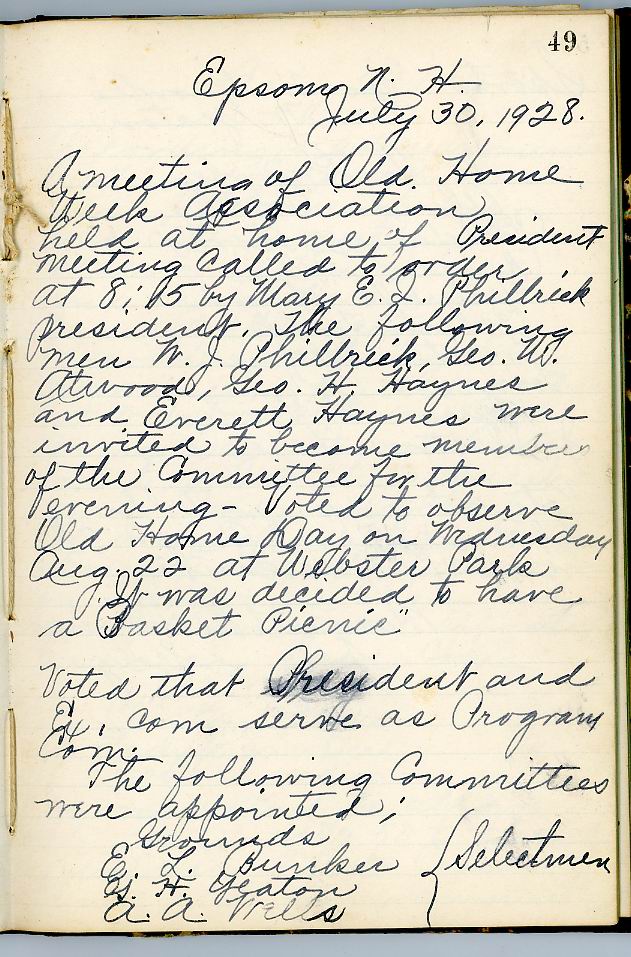 49
Epsom N. H.
July 30, 1928.
A meeting of Old Home
Week Association
held at home of President
meeting called to order
at 8:15 by Mary E. J. Philbrick
president. The following
men W. J. Philbrick, Geo. W.
Atwood, Geo. H. Haynes
and Everett Haynes were
invited to become members
of the Committee for the
evening - Voted to observe
Old Home Day on Wednesday
Aug. 22 at Webster Park
It was decided to have
a Basket Picnic"
Voted that President and
Ex. com serve as Program
Com.
The following Committees
were appointed;
Grounds
E. L. Bunker { Selectmen
H. Yeaton
A. A. Wells